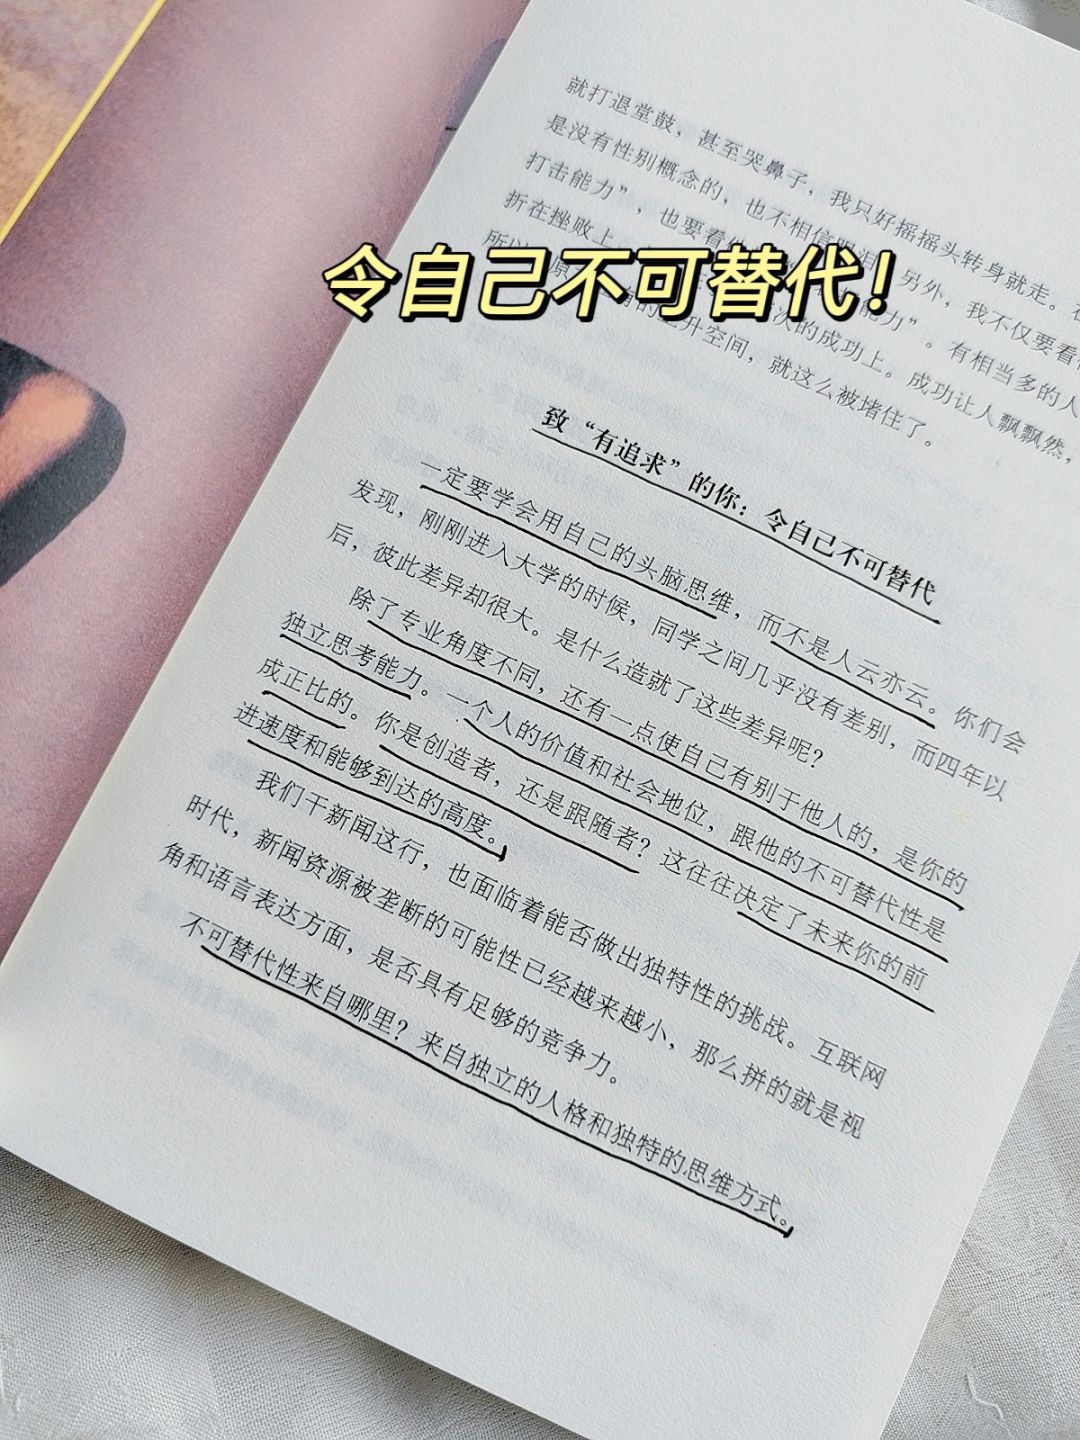 就打退堂鼓，甚至哭鼻子，我只好摇摇头转身就走。
是没有性别概念的，也不相信眼泪。另外，我不仅要看
打击能力”，也要看
能力”。有相当多的人
折在挫败上，
次的成功上。成功让人飘飘然，
所以
的上升空间，就这么被堵住了。
令自己不可替代！
致“有追求”的你：令自己不可替代
一定要学会用自己的头脑思维，而不是人云亦云。你们会
发现，刚刚进入大学的时候，同学之间几乎没有差别，而四年以
后，彼此差异却很大。是什么造就了这些差异呢？
除了专业角度不同，还有一点使自己有别于他人的，是你的
独立思考能力。一个人的价值和社会地位，跟他的不可替代性是
成正比的。你是创造者，还是跟随者？这往往决定了未来你的前
进速度和能够到达的高度。
我们干新闻这行，也面临着能否做出独特性的挑战。互联网
时代，新闻资源被垄断的可能性已经越来越小，那么拼的就是视
角和语言表达方面，是否具有足够的竞争力。
不可替代性来自哪里？来自独立的人格和独特的思维方式。